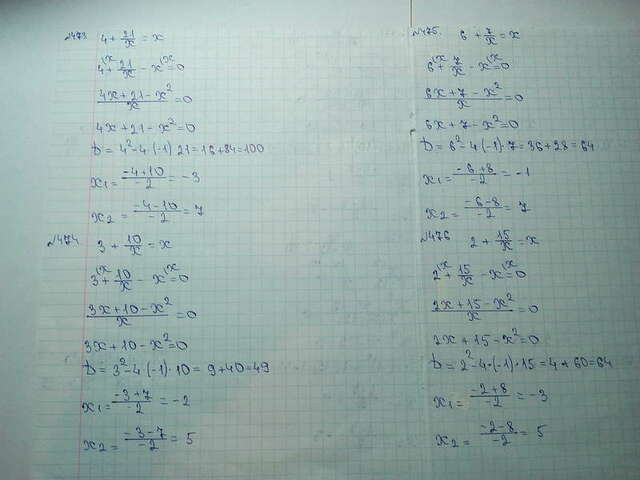 №473 4 + 21/x = x
4(x + 21/x - x(x = 0
4x + 21 - x²/x = 0
4x + 21 - x² = 0
D = 4² - 4·(-1)·21 = 16 + 84 = 100
x₁ = -4+10/-2 = -3
x₂ = -4-10/-2 = 7
№474 3 + 10/x = x
3(x + 10/x - x(x = 0
3x + 10 - x²/x = 0
3x + 10 - x² = 0
D = 3² - 4·(-1)·10 = 9 + 40 = 49
x₁ = -3+7/-2 = -2
x₂ = -3-7/-2 = 5
№475. 6 + 7/x = x
6(x + 7/x - x(x = 0
6x + 7 - x²/x = 0
6x + 7 - x² = 0
D = 6² - 4·(-1)·7 = 36 + 28 = 64
x₁ = -6+8/-2 = -1
x₂ = -6-8/-2 = 7
№476 2 + 15/x = x
2(x + 15/x - x(x = 0
2x + 15 - x²/x = 0
2x + 15 - x² = 0
D = 2² - 4·(-1)·15 = 4 + 60 = 64
x₁ = -2+8/-2 = -3
x₂ = -2-8/-2 = 5